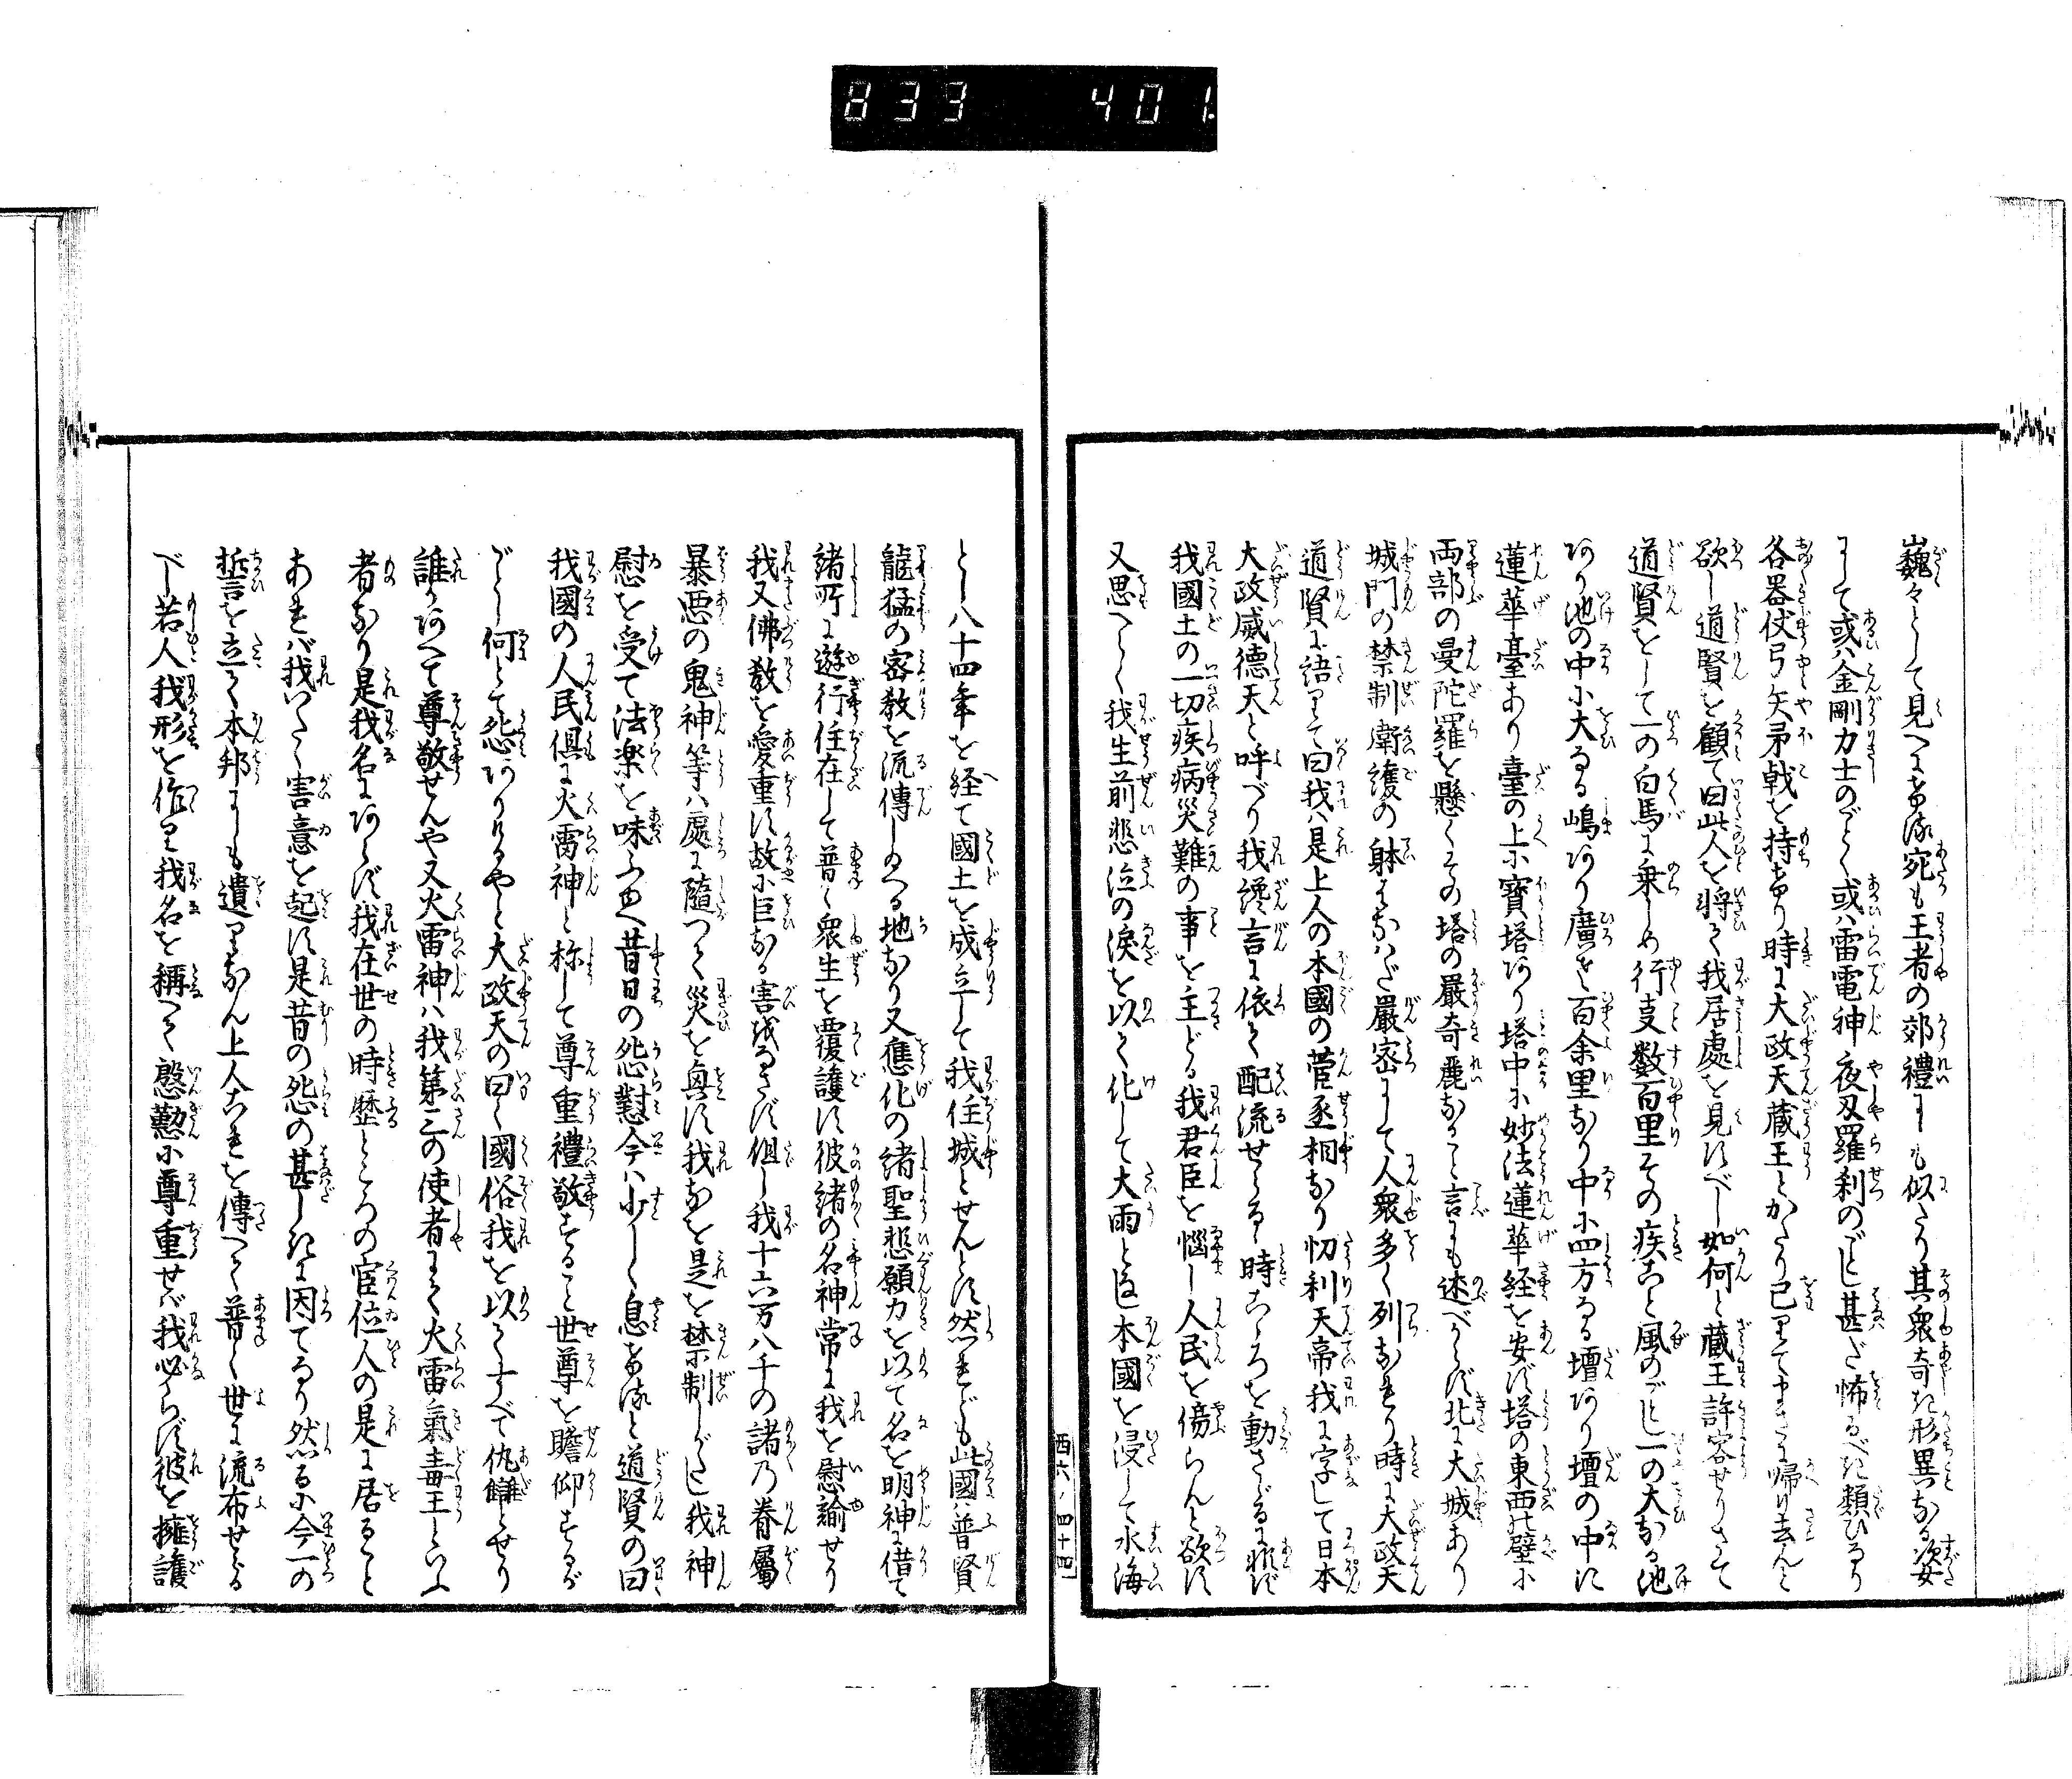 833 401.
巍々として見へにける宛も王者の郊禮にしも似たり其衆奇き形異なる姿
にして或ハ金剛力士のごとく或ハ雷電神夜叉羅刹のごとし甚だ怖るべき類ひなり
各器仗弓矢矛戟を持けり時に大政天蔵王とかたり已りて帰り去んと
欲し道賢を顧て曰此人を将て我居處を見すべし如何と蔵王許容せりさて
道賢をして一の白馬に乗しめ行支数百里その疾こと風のごとし一の大なる池
あり池の中に大なる嶋あり廣さ百余里なり中に四方なる壇あり壇の中に
蓮華臺あり臺の上に寳塔あり塔中に妙法蓮華経を安ず塔の東西の壁に
両部の曼陀羅を懸くその塔の嚴奇麗なること言にも述べからず北に大城あり
城門の禁制衛護の躰はなはだ嚴密にして人衆多く列なれり時に大政天
道賢に語りて曰我ハ是上人の本國の菅丞相なり忉利天帝我に字して日本
大政威徳天と呼べり我讒言に依て配流せらる時こゝろを動さゞるに非ず
我國土の一切疾病災難の事を主どる我君臣を惱し人民を傷らんと欲す
又思へらく我生前悲泣の涙を以て化して大雨となし本國を浸して水海
西六ノ四十四
とし八十四年を経て國土を成立して我住城とせんとす然れども此國ハ普賢
龍猛の密教を流傳しのへる地なり又應化の諸聖悲願力を以て名を明神に借て
諸所に遊行住在して普く衆生を覆護す彼諸の名神常に我を慰諭せり
我又佛教を愛重す故に巨なる害をなさず但し我十六万八千の諸乃眷屬
暴悪の鬼神等ハ處に隨つて災を與す我なを是を禁制しがたし我神
慰を受て法楽を味ふゆへ昔日の怨懟今ハ少しく息けると道賢の曰
我國の人民倶に火雷神と称して尊重禮敬すること世尊を瞻仰するが
ごとし何とて怨ありけるやと大政天の曰く國俗我を以てすべて仇讎とせり
誰かあへて尊敬せんや又火雷神ハ我第三の使者にて火雷氣毒王といふ
者なり是我名にあらず我在世の時歴ところの官位人の是に居ること
あれバ我いたく害意を起す是昔の怨の甚しきに因てなり然るに今一の
誓言を立て本邦にしも遺りなん上人これを傳へて普く世に流布せらる
べし若人我形を作り我名を稱へて慇懃に尊重せバ我必らず彼を擁護